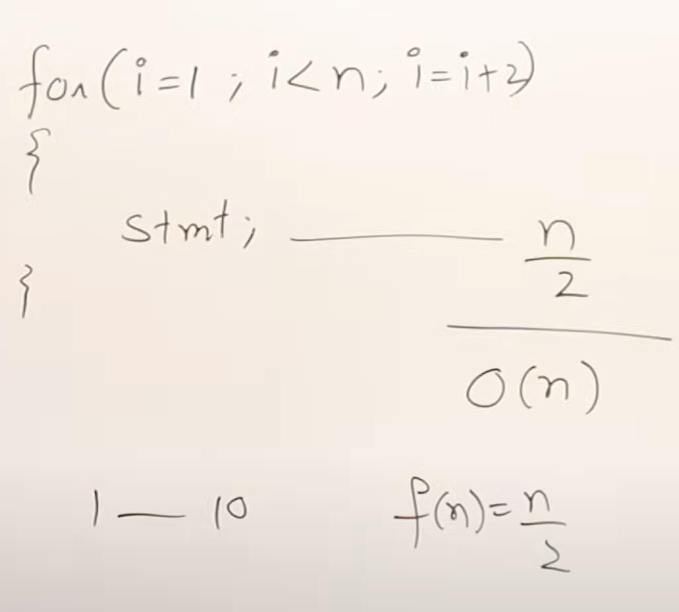 for(i=1 ; i<n; i=i+2)
{
stmt; —— n/2
}
O(n)
1 — 10 f(n)=n/2